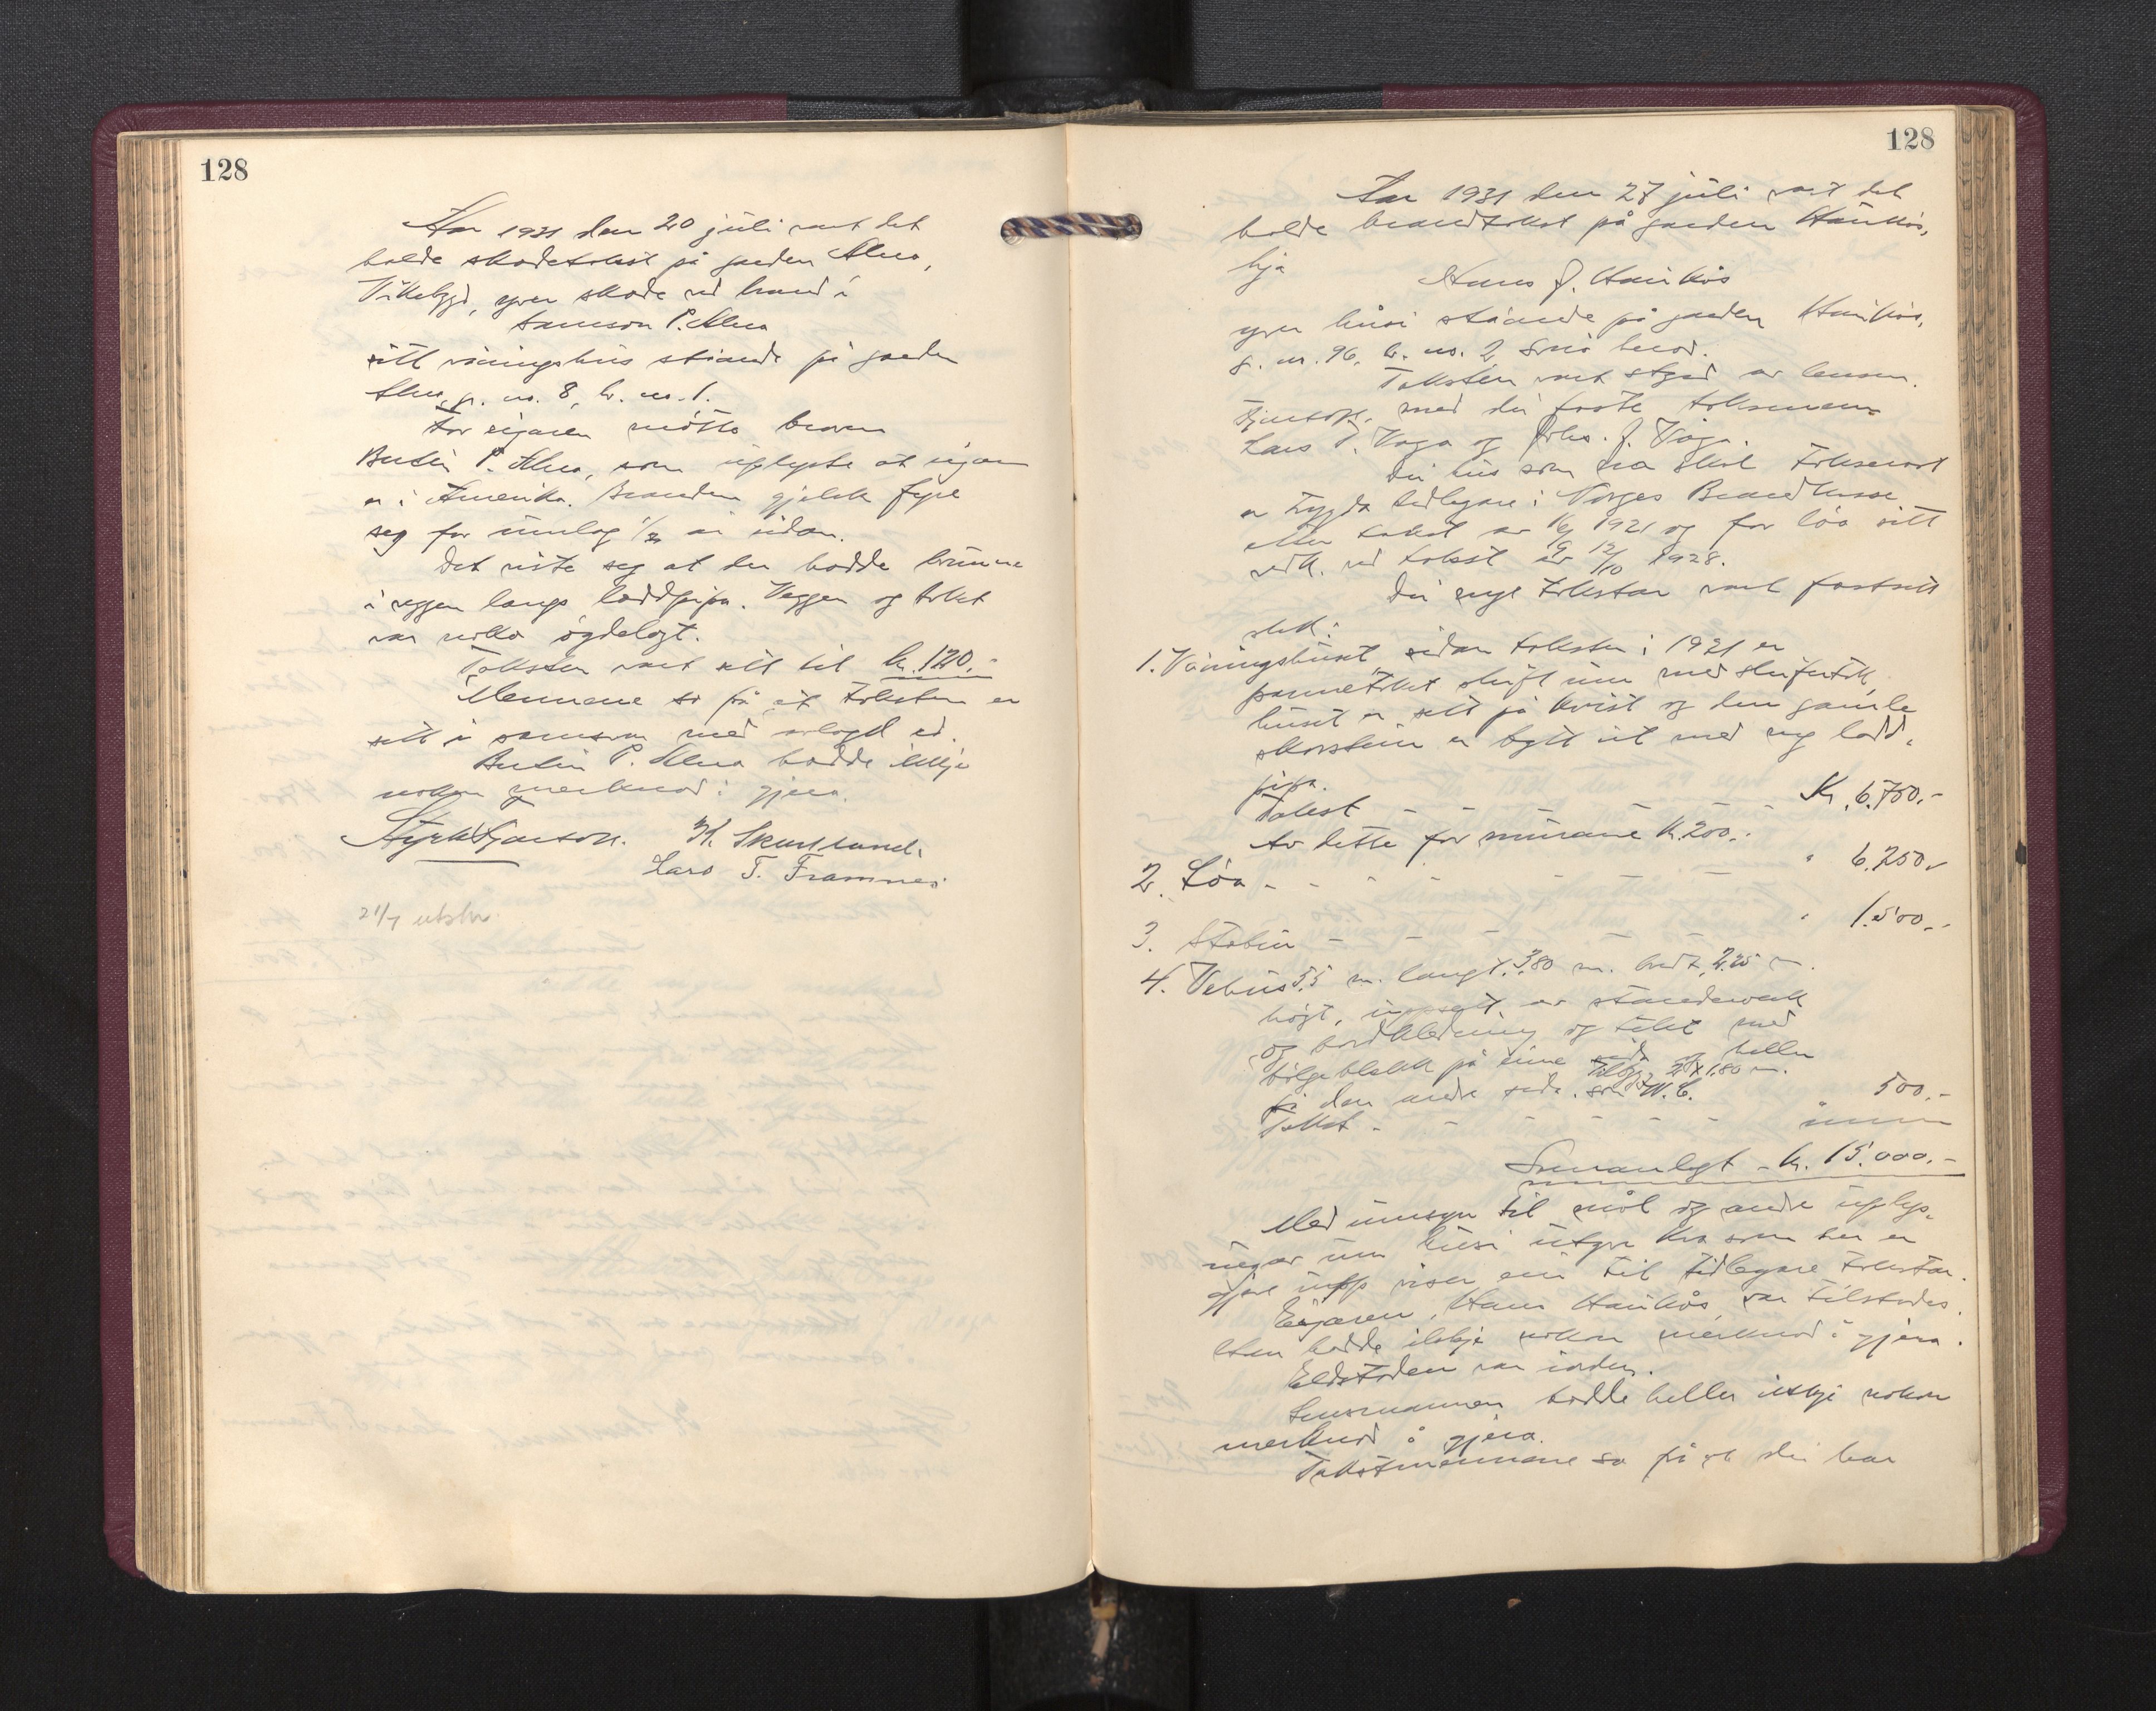 128
Aar 1931 den 20 juli vart det
halde skadetakst på garden Alne,
Vikebygd, yver skade ved brand i
Samson P. Alne
sitt våningshus stáande på garden
Alne, g. nr. 8, br. nr. 1.
For eigaren møtte broren
P. Alne, som upplyste at eigaren
er i Amerika. Branden gjekk fyre
seg for umlag 1/2 år sidan.
Det viste seg at der hadde brunne
i veggen langs loddpipa. Veggen og taket
var noko øydelagt.
Taksten vart sett til kr. 120.-
Mennene so på at taksten er
sett i samsvar med avlagd ed.
P. Alne hadde ikkje
nokon merknad å gjera.
K. Skartland.
Lars T. Framnes
21/7 utskr.
128
Aar 1931 den 27 juli vart det
halde brandtakst på garden Haukås,
hjå
Hans J. Haukås
yver husi stáande på garden Haukås,
g. nr. 96, br. nr. 2
Taksten vart styrd av lensm.
med dei faste taksmenn
Lars T. Våga og Johs. J. Våga.
Dei hus som no skal takserast
er trygda tidlegare i Norges Brandkasse
etter takst av 16/9 1921 og for løa sitt
vedk. ved takst av 12/10 1928.
Dei nye takstar vart fastsett
slik:
1. Våningshuset, sidan taksten i 1921 er
pannetaket skift um med skifertak,
huset er sett på kvist og den gamle
skorstein er bytt ut med ny lodd-
pipa.
Takst - - - - - - Kr. 6.750.-
Av dette for murane kr. 200.-
2. Løa - - - - - - - " 6.250.-
3. Stabur - - - - - " 1.500.-
4. Vehus 5,5 m. langt, 3,80 m. bredt, 2,25 m.
høgt, uppsett av standarverk
og bordkledning og tekt med
bølgeblekk på eine sida og heller
på den andre sida. Tilbygg 2 x 1.80 m. som W.C.
Takst - - - - - - 500.-
Samanlagt - kr. 15.000.-
Med umsyn til mål og andre upplys-
ningar um husi utyver kva som her er
gjeve upp viser ein til tidlegare takstar.
Eigaren, Hans Haukås var tilstades.
Han hadde ikkje nokon merknad å gjera.
Eldstaden var i orden.
Lensmannen hadde heller ikkje nokon
merknad å gjera.
Takstmennene so på at dei har